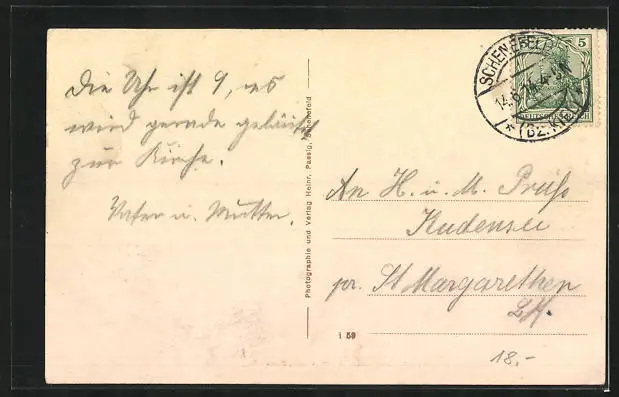 Die Uhr ist 9, es
wird gerade geläutet
zur Kirche.
Vater u. Mutter.
Photographie und Verlag Heinr. Paesig, Schenefeld
SCHENEFELD
14.6.14.
* (BZ. KIEL)
5
DEUTSCHES REICH
An H. u. M. Prüß
Kudensee
pr. St Margarethen
i 59
18.-